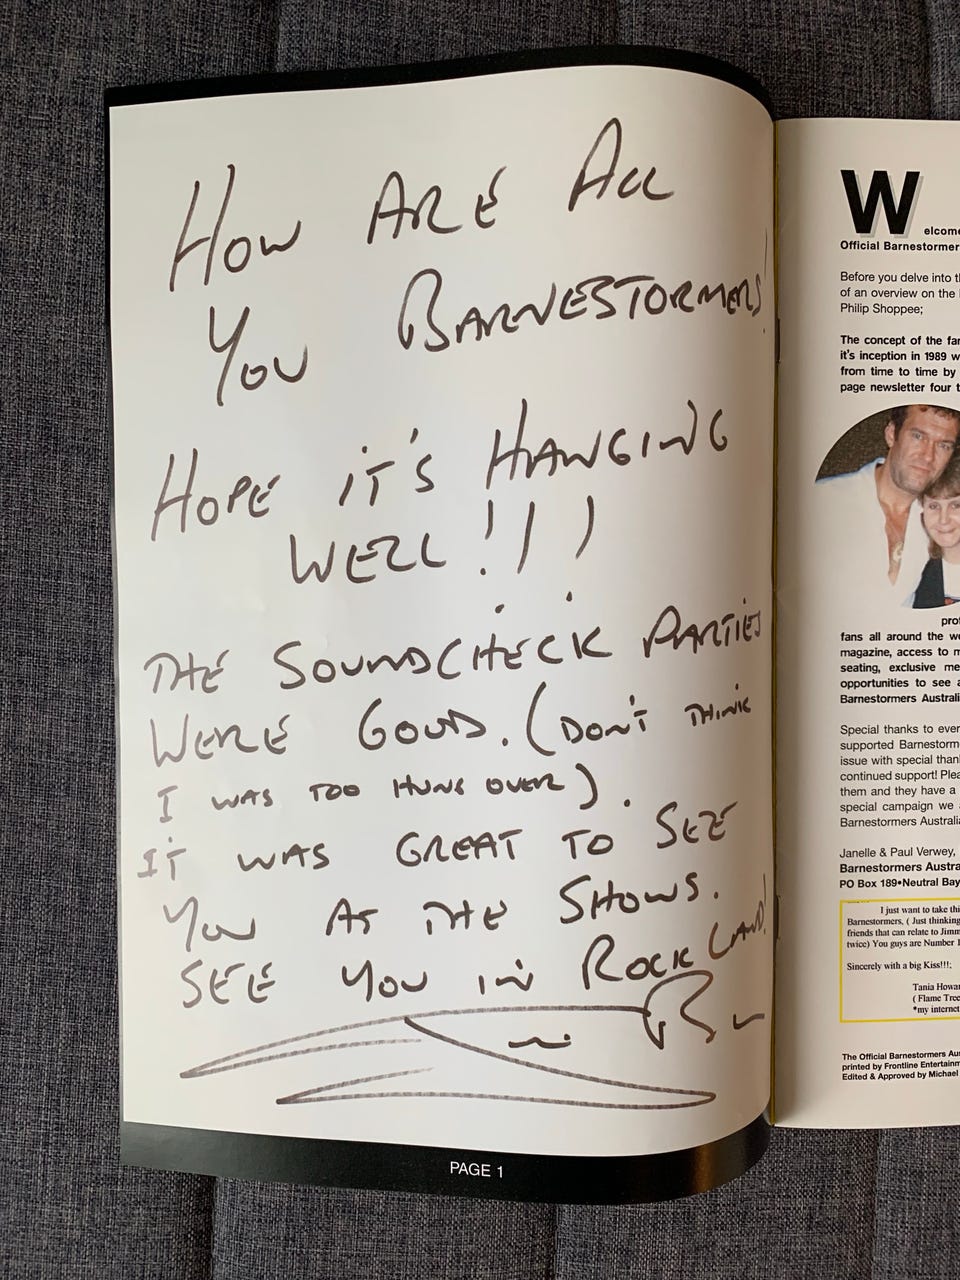 How ARE All
You BARNESTORMERS!
HOPE iT'S HANGiNG
WELL!!!
THE SOUNDCHECK PARTIES
WERE GOOD. (DON'T THINK
I WAS TOO HUNG OVER).
IT WAS GREAT TO SEE
YOU AT THE SHOWS.
SEE YOU IN ROCK LAND!
PAGE 1
Welcome
Official Barnestormer
Before you delve into
of an overview on the
Philip Shoppee;
The concept of the
it's inception in 1989
from time to time by
page newsletter four
fans all around the
magazine, access to
seating, exclusive
opportunities to see
Barnestormers
Special thanks to
supported
issue with special
continued support!
them and they have a
special campaign we
Barnestormers
Janelle & Paul Verwey,
Barnestormers
PO Box 189•Neutral Bay
I just want to take
Barnestormers, ( Just thinking
friends that can relate to
twice) You guys are Number
Sincerely with a big Kiss!!!;
Tania
( Flame
*my internet
The Official Barnestormers
printed by Frontline
Edited & Approved by Michael